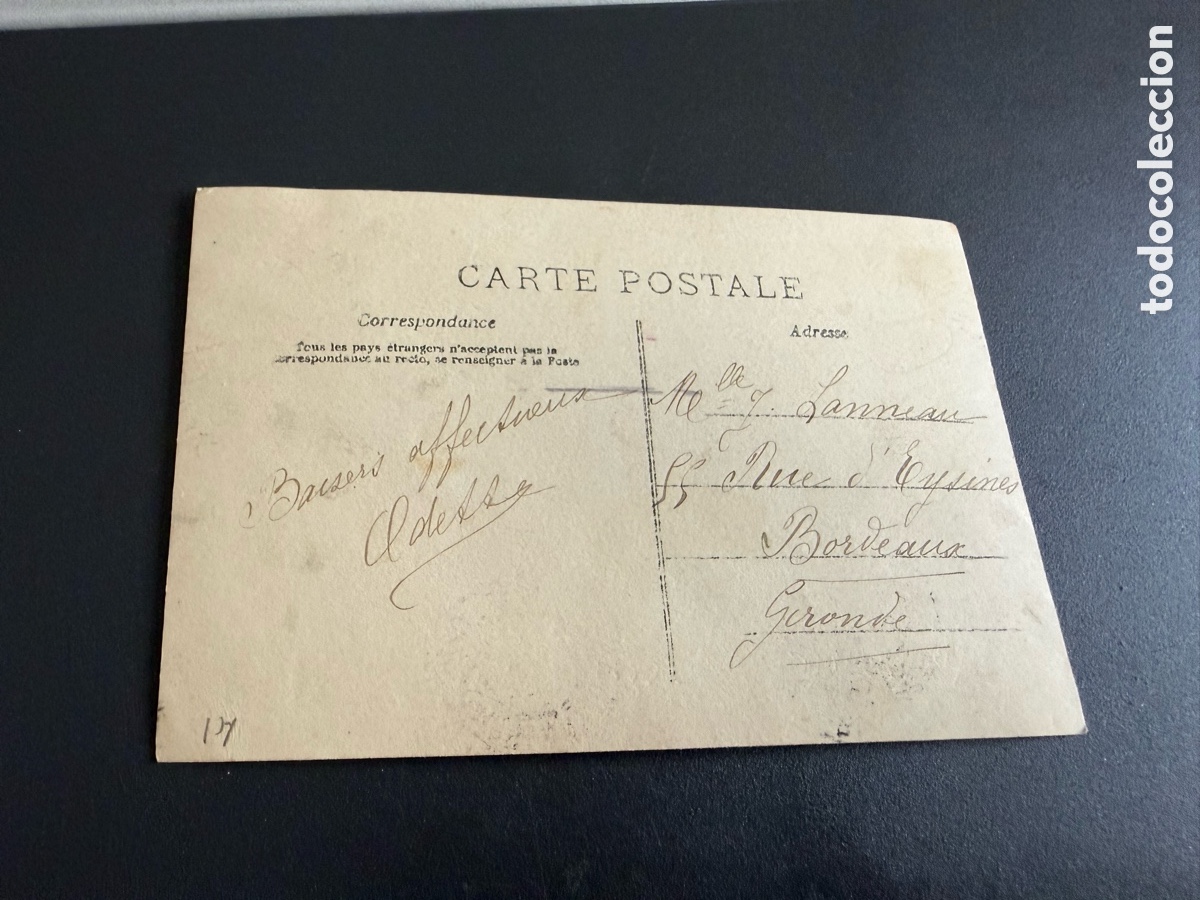 CARTE POSTALE
Correspondance
Tous les pays étrangers n'acceptent pas la
correspondance au recto, se renseigner à la Poste
Baisers affectueux
Odette
Adresse
Mlle J. Lanneau
55 Rue d'Eysines
Bordeaux
Gironde
todocoleccion